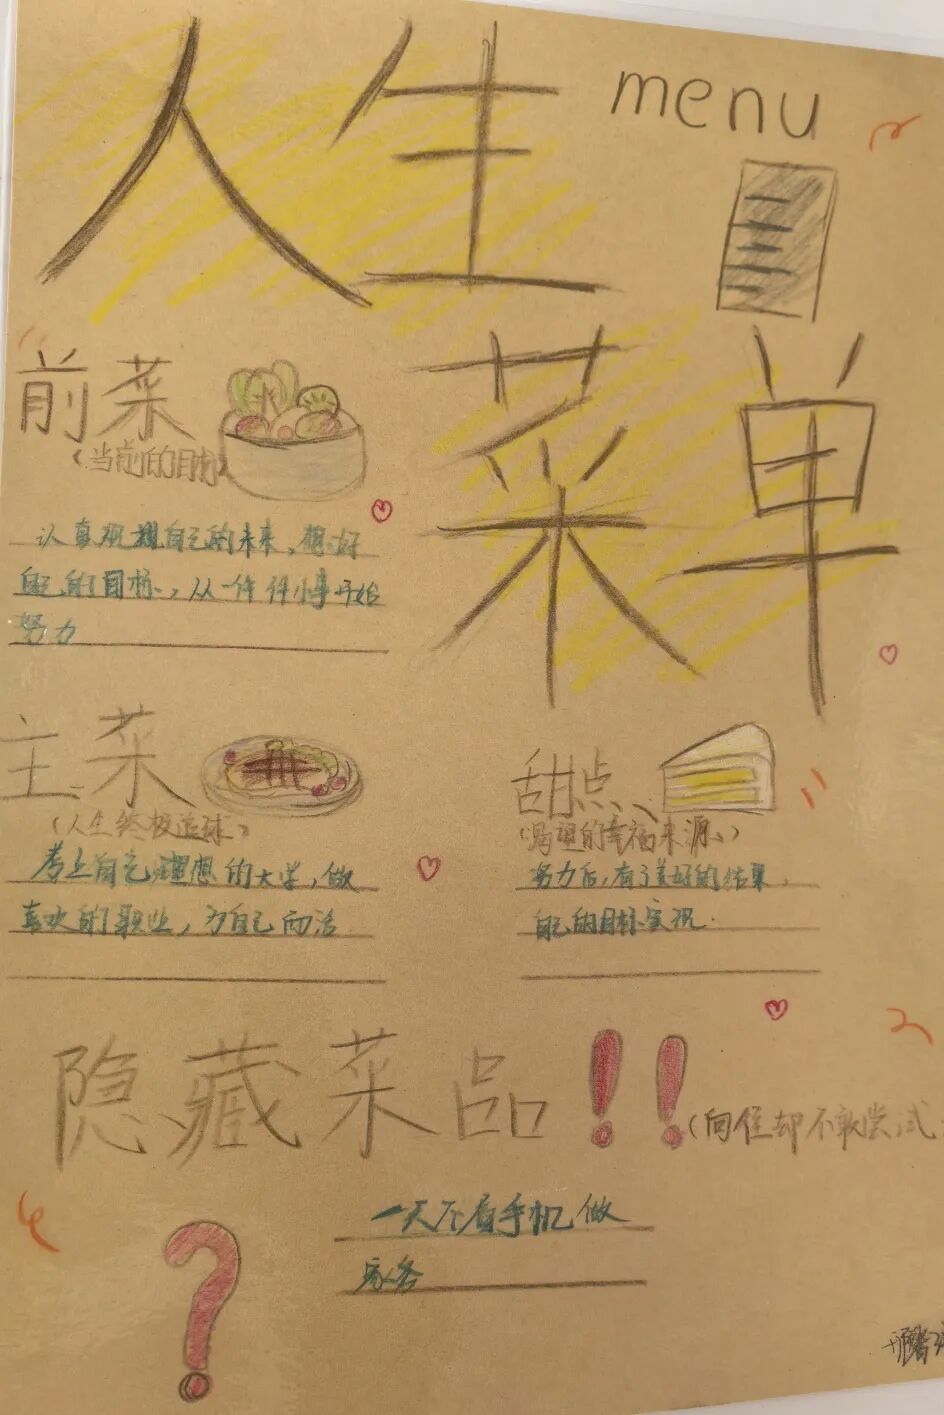 人生 menu
菜单
前菜
(当前的目标)
认真规划自己的未来，想好
自己的目标，从一件件小事开始
努力
主菜
(人生终极追求)
考上自己理想的大学，做
喜欢的职业，为自己而活
甜点
(渴望的幸福来源)
努力后，有了美好的结果，
自己的目标实现.
隐藏菜品!!
(向往却不敢尝试
一天不看手机做
家务
?